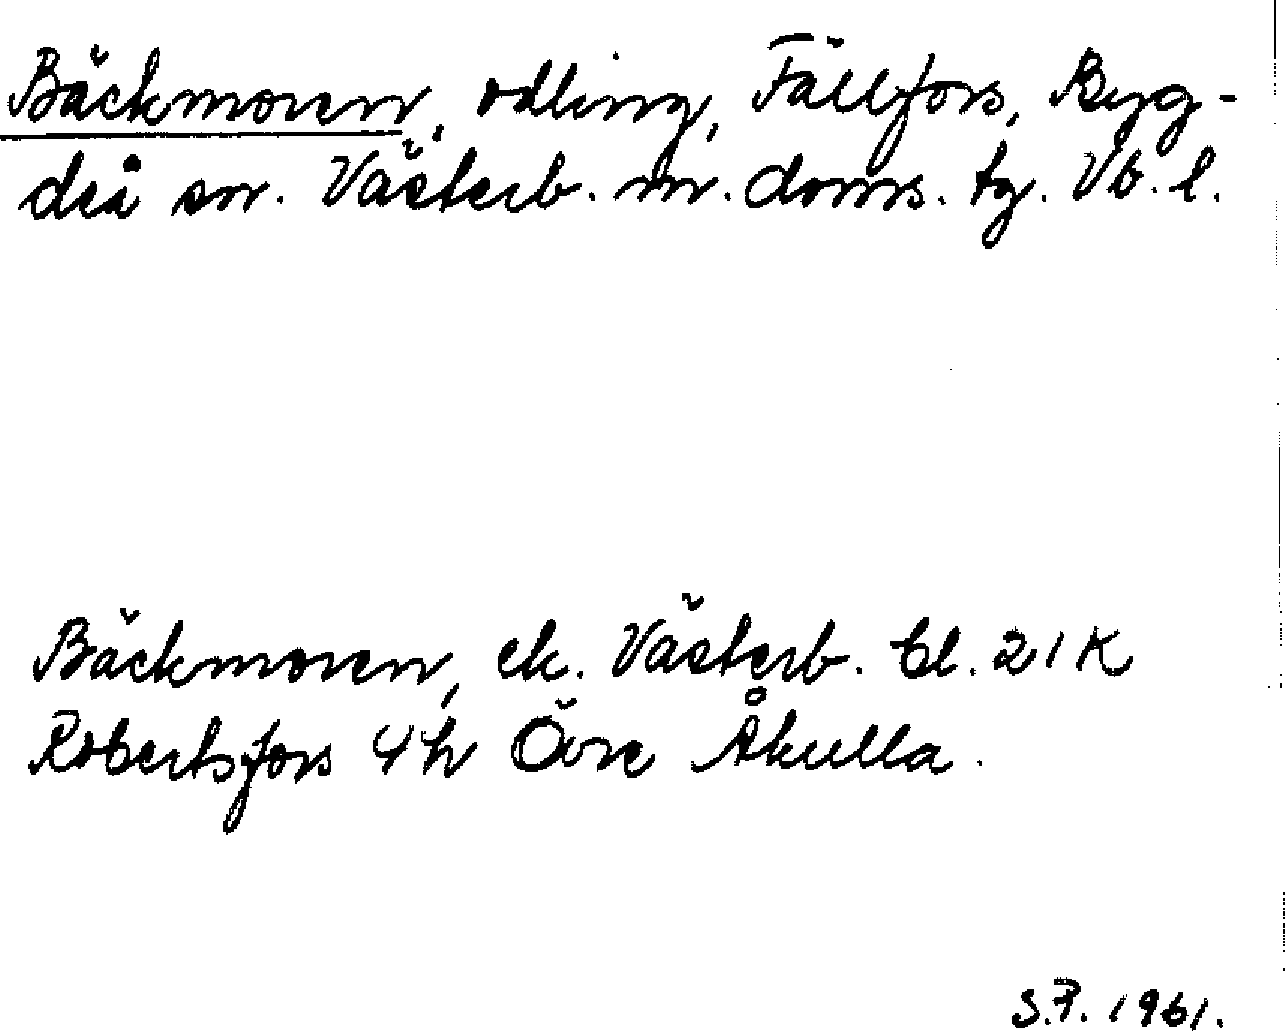 Bäckmoren, odling, Fällfors, Byg-
deå sn. Västerb. m. doms. tg. Vb. l.
Bäckmoren, ek. Västerb. bl. 21 K
Robertsfors 4 h Övre Åkulla.
S.P. 1961.